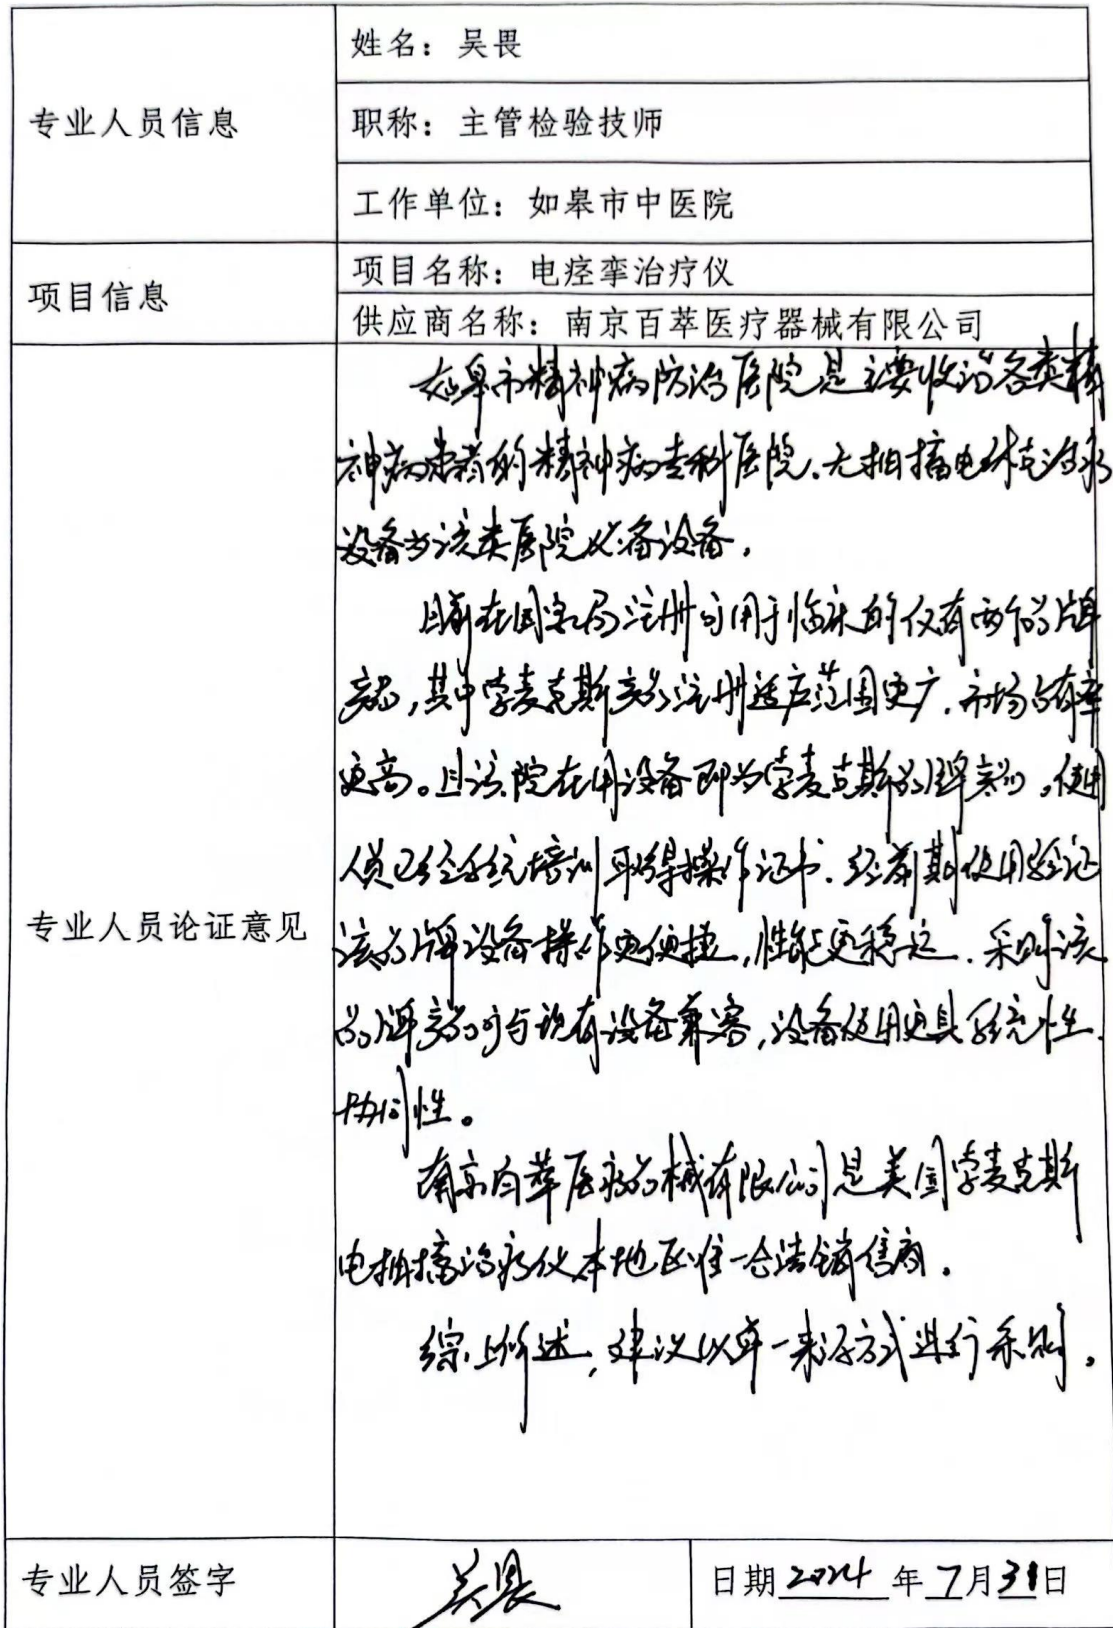 专业人员信息
姓名：吴畏
职称：主管检验技师
工作单位：如皋市中医院
项目信息
项目名称：电痉挛治疗仪
供应商名称：南京百萃医疗器械有限公司
专业人员论证意见
如皋市精神病防治医院是主要收治各类精
神病患者的精神病专科医院，无抽搐电休克治疗
设备为该类医院必备设备。
目前在国家局注册可用于临床的仅有两个品牌
产品，其中学麦克斯产品注册适应范围更广，市场占有率
更高。且该院在用设备即为学麦克斯品牌产品，使用
人员已经系统培训取得操作证书，经前期使用验证
该品牌设备操作更便捷，性能更稳定，采购该
品牌产品可与现有设备兼容，设备使用更具系统性、
协同性。
南京百萃医疗器械有限公司是美国学麦克斯
电抽搐治疗仪本地区唯一合法销售商。
综上所述，建议以单一来源方式进行采购。
专业人员签字
吴畏
日期 2024 年 7 月 31 日